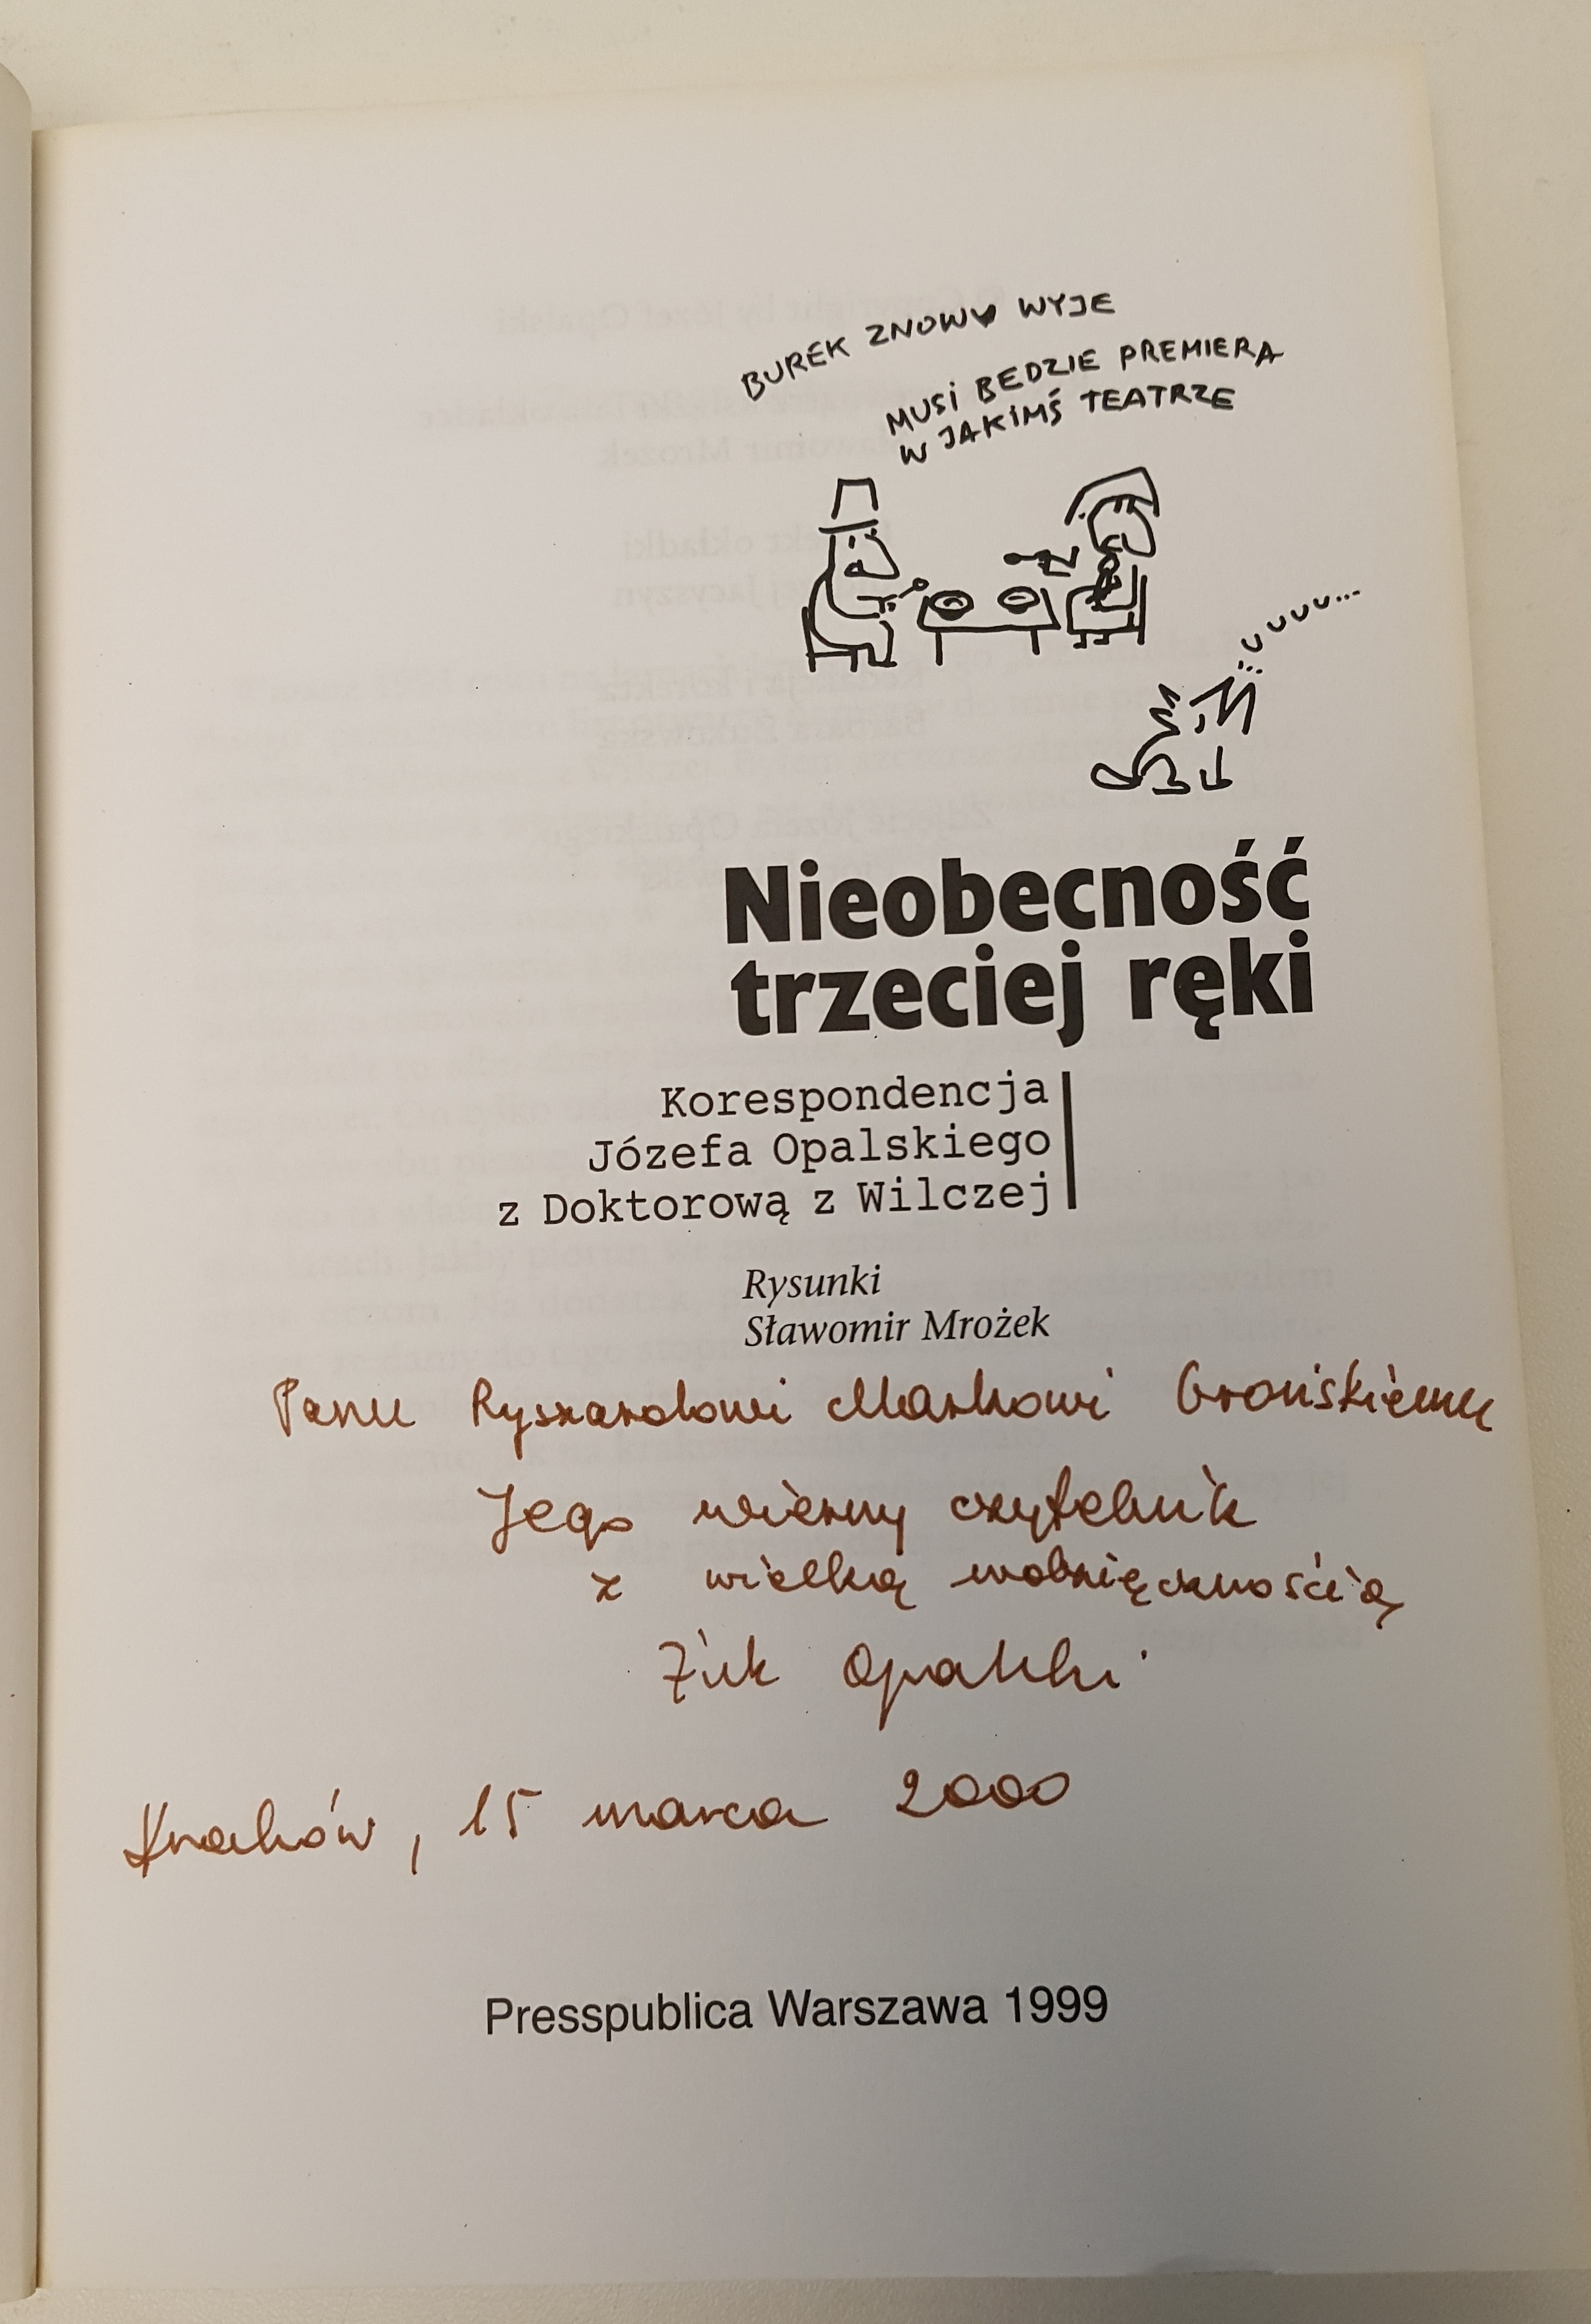 BUREK ZNOWU WYJE
MUSI BĘDZIE PREMIERA
W JAKIMŚ TEATRZE
UUUU...
Nieobecność
trzeciej ręki
Korespondencja
Józefa Opalskiego
z Doktorową z Wilczej
Rysunki
Sławomir Mrożek
Panu Ryszardowi Markowi Grońskiemu
Jego wierny czytelnik
z wielką wdzięcznością
Żuk Opalski
Kraków, 15 marca 2000
Presspublica Warszawa 1999